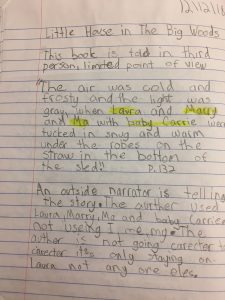 12/12/18
Little House in The Big Woods
This book is told in third
person, limited point of view
"The air was cold and
frosty and the light was
gray, when Laura and Marry
and Ma with baby Carrie were
tucked in snug and warm
under the robes on the
straw in the bottom of
the sled" P.132
An outside narrator is telling
the story. The auther used
Laura, Marry, Ma and baby Carrie
not useing I, me, my. The
auther is not going carecter to
carecter it's only staying on
Laura not any one eles.